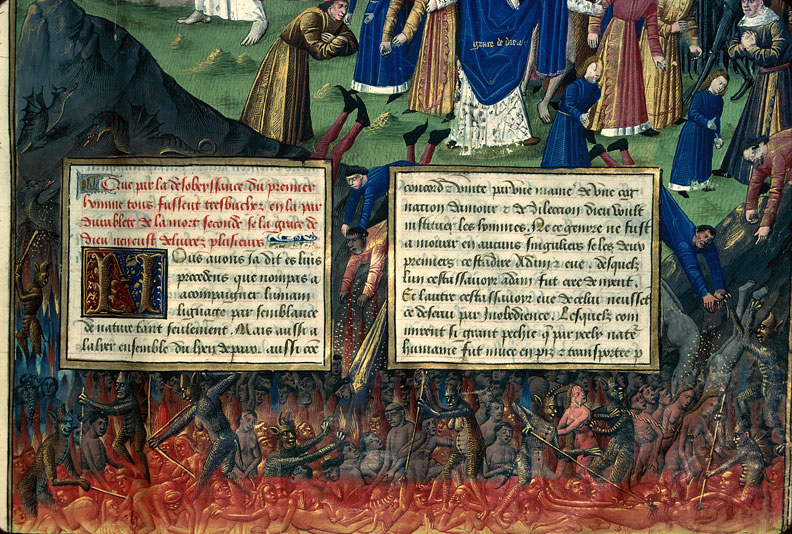 grace de dieu
Que par la desobeyssance du premier
homme tous fussent tresbuchez en la par
durablete de la mort seconde se la grace de
dieu nen eust delivrez plusieurs
Nous avons ia dit es livres
precedens que non pas a
acompaigner lumain
lignaige par semblance
de nature tant seulement. Mais aussi a
lalyer ensemble du lyen de paix. aussi com
concorde dunite par une maniere de une car
nation damour & de dilection dieu voult
instituer les hommes. Ne ce genre ne fust
a mourir en aucuns singuliers se les deux
premiers cestadire Adam & eve. desquelz
lun cestassavoir adam fut cree de nient.
Et lautre cestassavoir eve de celui neussent
ce deservi par inobedience. Lesquelz com
mirent si grant pechie que par icely nature
humaine fut muee en piz & transportee